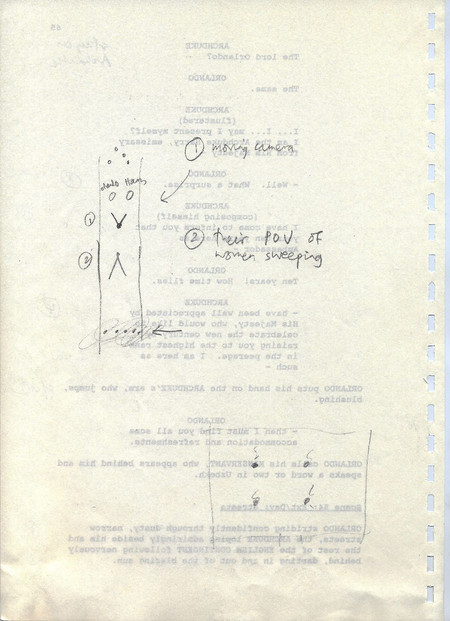 65
ARCHDUKE
The lord Orlando?
ORLANDO
The same.
ARCHDUKE
(flustered)
I... I... may I present myself?
I am the Archduke Harry, emissary
① moving camera
ORLANDO
- Well. What a surprise.
Harry
ARCHDUKE
(composing himself)
I have come to inform you that
①
② their POV of
women sweeping
②
ORLANDO
Ten years! How time flies.
ARCHDUKE
- have been well appreciated by
His Majesty, who would like to
celebrate the new century by
raising you to the highest rank
in the peerage. I am here as
such -
ORLANDO puts his hand on the ARCHDUKE's arm, who jumps,
blushing.
ORLANDO
- then I must find you all some
accommodation and refreshments.
ORLANDO calls his MANSERVANT, who appears behind him and
speaks a word or two in Uzbeck.
Ext/Day: Streets
ORLANDO striding confidently through dusty, narrow
streets, the ARCHDUKE loping admiringly beside him and
the rest of the ENGLISH CONTINGENT following nervously
behind, darting in and out of the blazing sun.